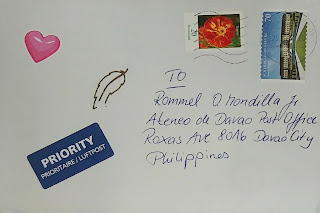 70
TO
Rommel O. Mondilla Jr
Ateneo de Davao Post Office
Roxas Ave 8016 Davao City
Philippines
PRIORITY
PRIORITAIRE / LUFTPOST